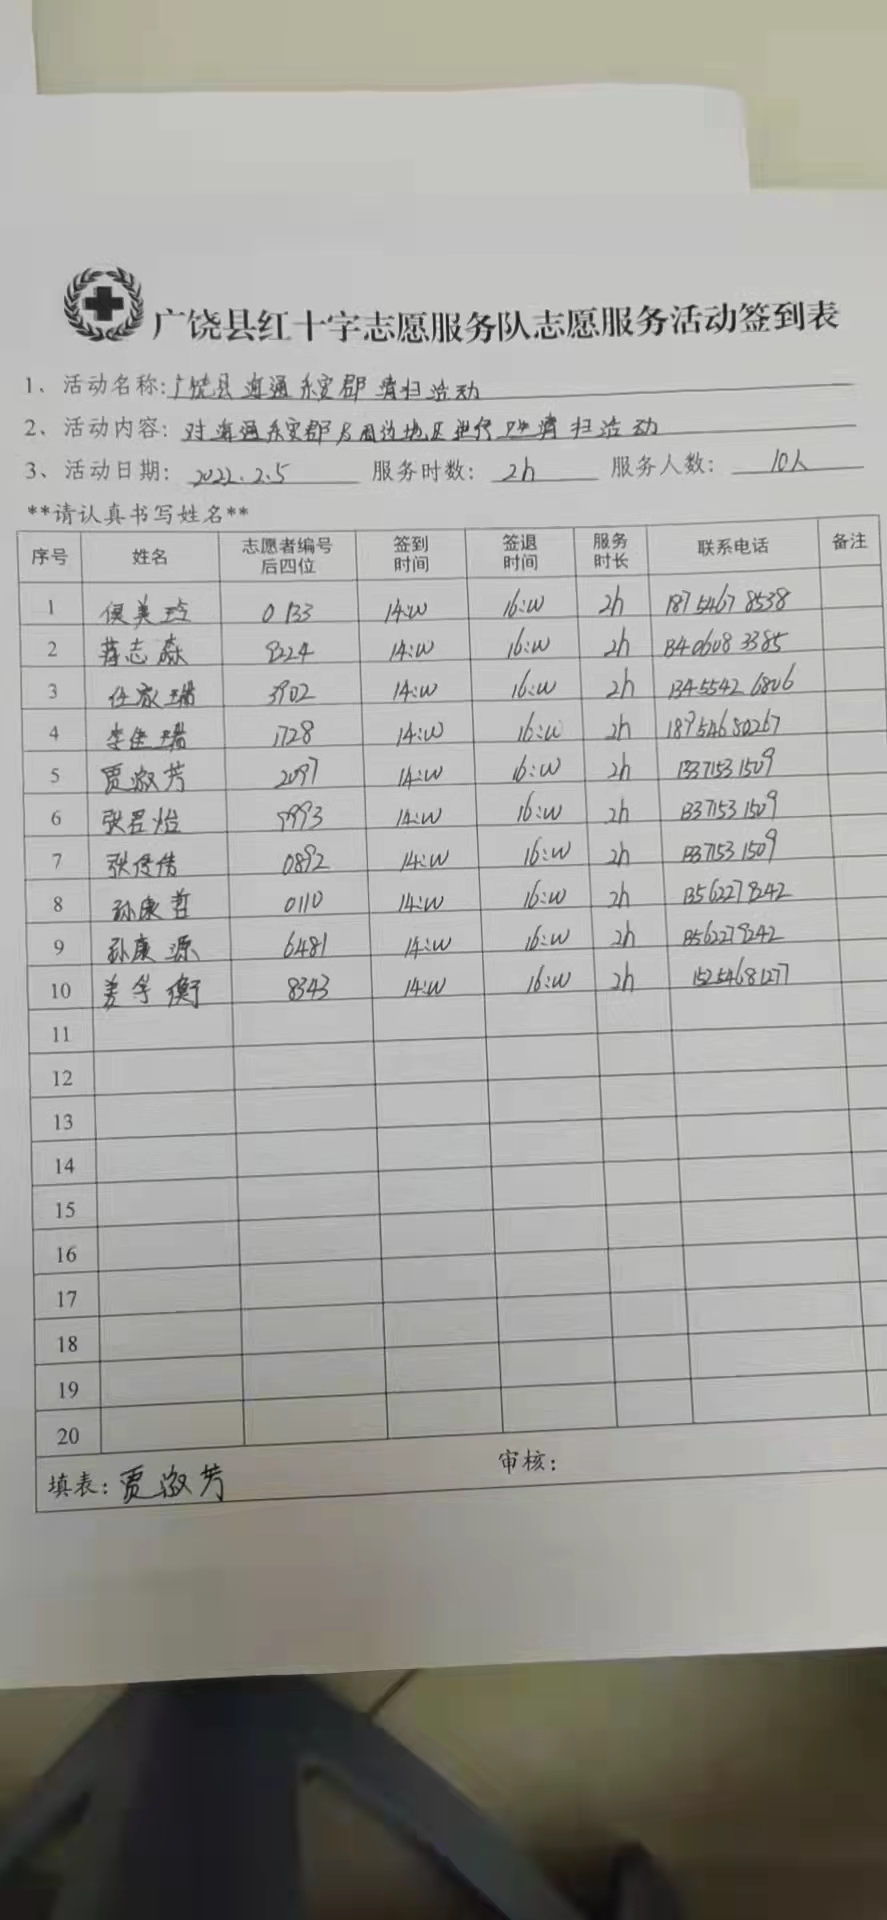 广饶县红十字志愿服务队志愿服务活动签到表
1、活动名称:广饶县海通东安郡清扫活动
2、活动内容: 对海通东安郡及周边地区进行 清扫活动
3、活动日期: 2022.2.5 服务时数: 2h 服务人数: 10人
**请认真书写姓名**
序号 姓名 志愿者编号后四位 签到时间 签退时间 服务时长 联系电话 备注
1 侯美 0133 14:00 16:00 2h 18754678538
2 蒋志淼 8224 14:00 16:00 2h 13406083385
3 任家瑞 3902 14:00 16:00 2h 13455426806
4 李佳瑞 1728 14:00 16:00 2h 18954680267
5 贾淑芳 2097 14:00 16:00 2h 13371531509
6 张君怡 9993 14:00 16:00 2h 13371531509
7 张 0892 14:00 16:00 2h 13371531509
8 孙康哲 0110 14:00 16:00 2h 13562278242
9 孙康源 6481 14:00 16:00 2h 13562278242
10 衡 8343 14:00 16:00 2h 15254681277
11
12
13
14
15
16
17
18
19
20
填表: 贾淑芳 审核: